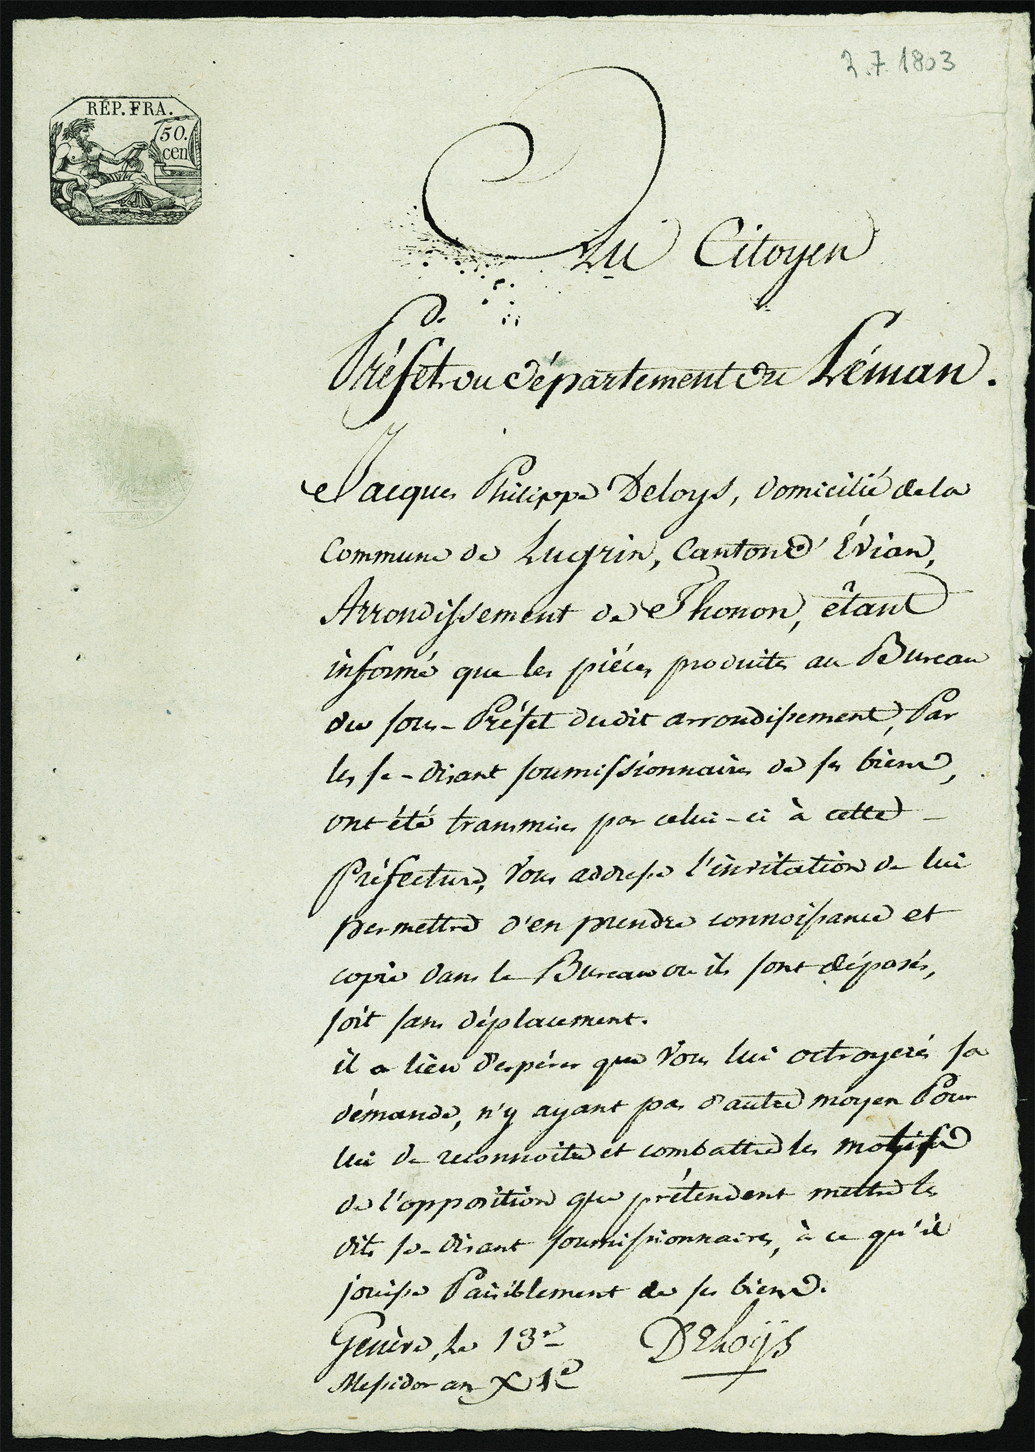 2.7.1803
RÉP. FRA.
50.
cen
Au Citoyen
Préfet du département du Léman.
Jacques Philippe Deloys, domicilié de la
Commune de Lugrin, Canton d'Évian,
Arrondissement de Thonon, étant
informé que les piéces produites au Bureau
du sous-Préfet dudit arrondissement, Par
les se-disant soumissionnaires de ses biens,
ont été transmises par celui-ci à cette
Préfecture, Vous addresse l'invitation de lui
permettre d'en prendre connoissance et
copie dans le Bureau ou ils sont déposés,
soit sans déplacement.
il a lieu d'espérer que Vous lui octroyerés sa
démande, n'y ayant pas d'autre moyen Pour
lui de reconnoitre et combattre les motifs
de l'opposition que prétendent mettre les
dits se-disant soumissionnaires, à ce qu'il
jouisse Paisiblement de ses biens.
Genève, le 13e Deloÿs
Messidor an XIe